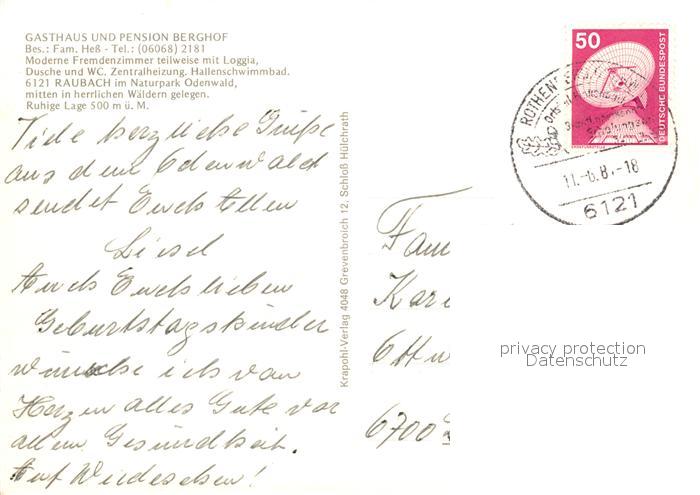 GASTHAUS UND PENSION BERGHOF
Bes.: Fam. Heß - Tel.: (06068) 2181
Moderne Fremdenzimmer teilweise mit Loggia,
Dusche und WC. Zentralheizung. Hallenschwimmbad.
6121 RAUBACH im Naturpark Odenwald,
mitten in herrlichen Wäldern gelegen.
Ruhige Lage 500 m ü. M.
Viele herzliche Grüße
aus dem Odenwald
sendet Euch Allen
Liesel
Auch Euch lieben
Geburtstagskinder
wünsche ich von
Herzen alles Gute vor
allem Gesundheit.
Auf Wiedesehen!
Krapohl-Verlag 4048 Grevenbroich 12, Schloß Hülchrath
50
DEUTSCHE BUNDESPOST
ROTHENBERG
11.-6.8.-18
6121
Fam
Kar
Ott
6700
privacy protection
Datenschutz